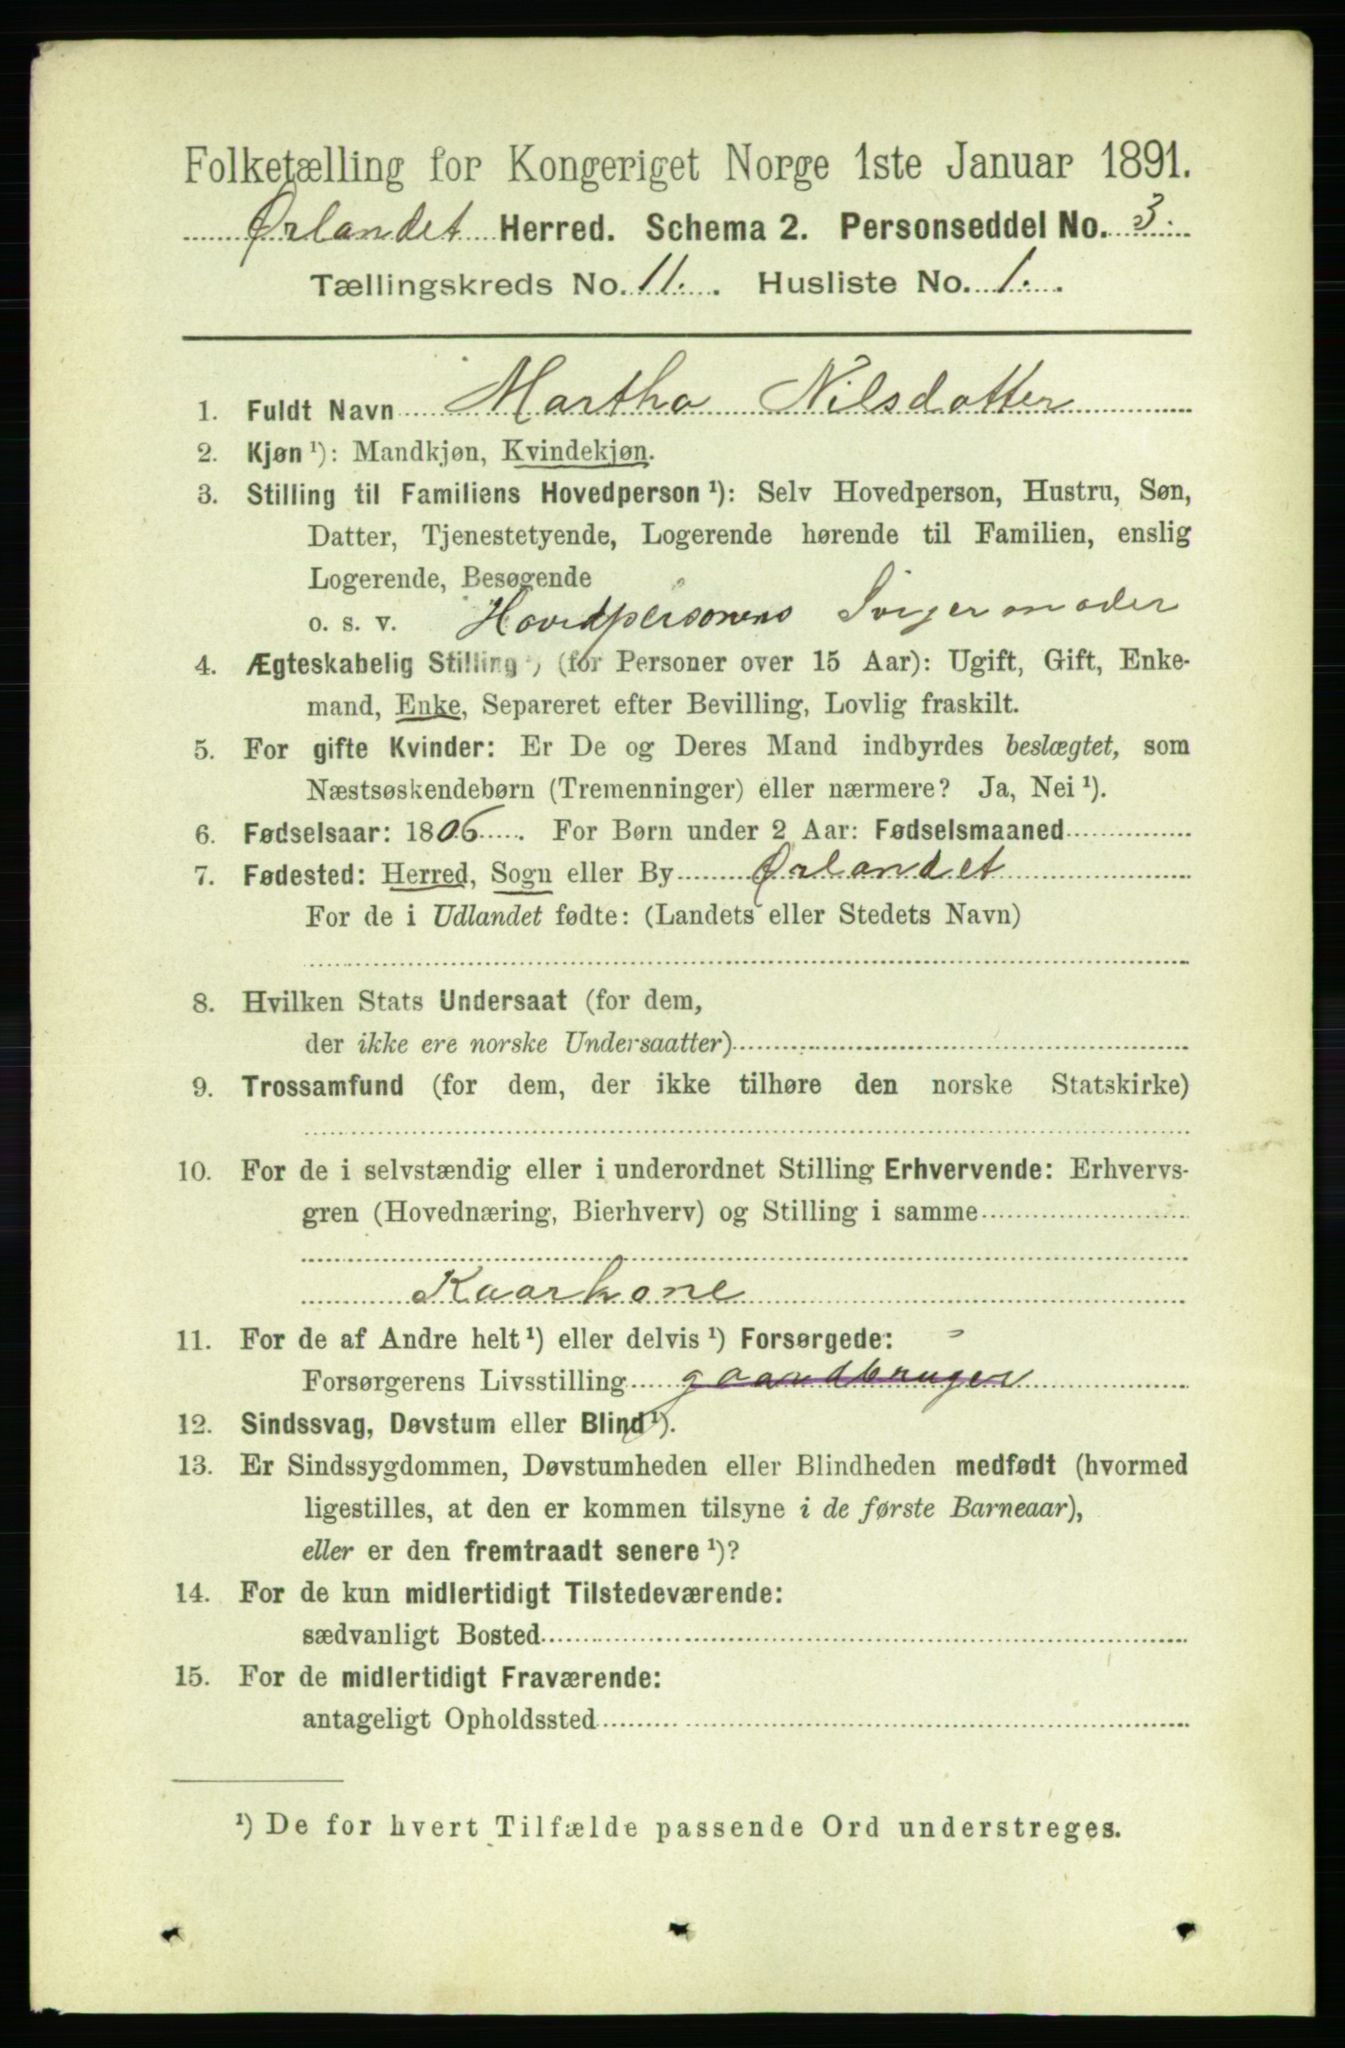 Folketælling for Kongeriget Norge 1ste Januar 1891.
Ørlandet Herred. Schema 2. Personseddel No. 3.
Tællingskreds No. 11. Husliste No. 1.
1. Fuldt Navn Martha Nilsdatter
2. Kjøn ¹): Mandkjøn, Kvindekjøn.
3. Stilling til Familiens Hovedperson ¹): Selv Hovedperson, Hustru, Søn,
Datter, Tjenestetyende, Logerende hørende til Familien, enslig
Logerende, Besøgende
o. s. v. Hovedpersonens Svigermoder
4. Ægteskabelig Stilling ¹) (for Personer over 15 Aar): Ugift, Gift, Enke-
mand, Enke, Separeret efter Bevilling, Lovlig fraskilt.
5. For gifte Kvinder: Er De og Deres Mand indbyrdes beslægtet, som
Næstsøskendebørn (Tremenninger) eller nærmere? Ja, Nei ¹).
6. Fødselsaar: 1806. For Børn under 2 Aar: Fødselsmaaned
7. Fødested: Herred, Sogn eller By Ørlandet
For de i Udlandet fødte: (Landets eller Stedets Navn)
8. Hvilken Stats Undersaat (for dem,
der ikke ere norske Undersaatter)
9. Trossamfund (for dem, der ikke tilhøre den norske Statskirke)
10. For de i selvstændig eller i underordnet Stilling Erhvervende: Erhvervs-
gren (Hovednæring, Bierhverv) og Stilling i samme
Kaarkone
11. For de af Andre helt ¹) eller delvis ¹) Forsørgede:
Forsørgerens Livsstilling gaardbruger
12. Sindssvag, Døvstum eller Blind ¹).
13. Er Sindssygdommen, Døvstumheden eller Blindheden medfødt (hvormed
ligestilles, at den er kommen tilsyne i de første Barneaar),
eller er den fremtraadt senere ¹)?
14. For de kun midlertidigt Tilstedeværende:
sædvanligt Bosted
15. For de midlertidigt Fraværende:
antageligt Opholdssted
¹) De for hvert Tilfælde passende Ord understreges.